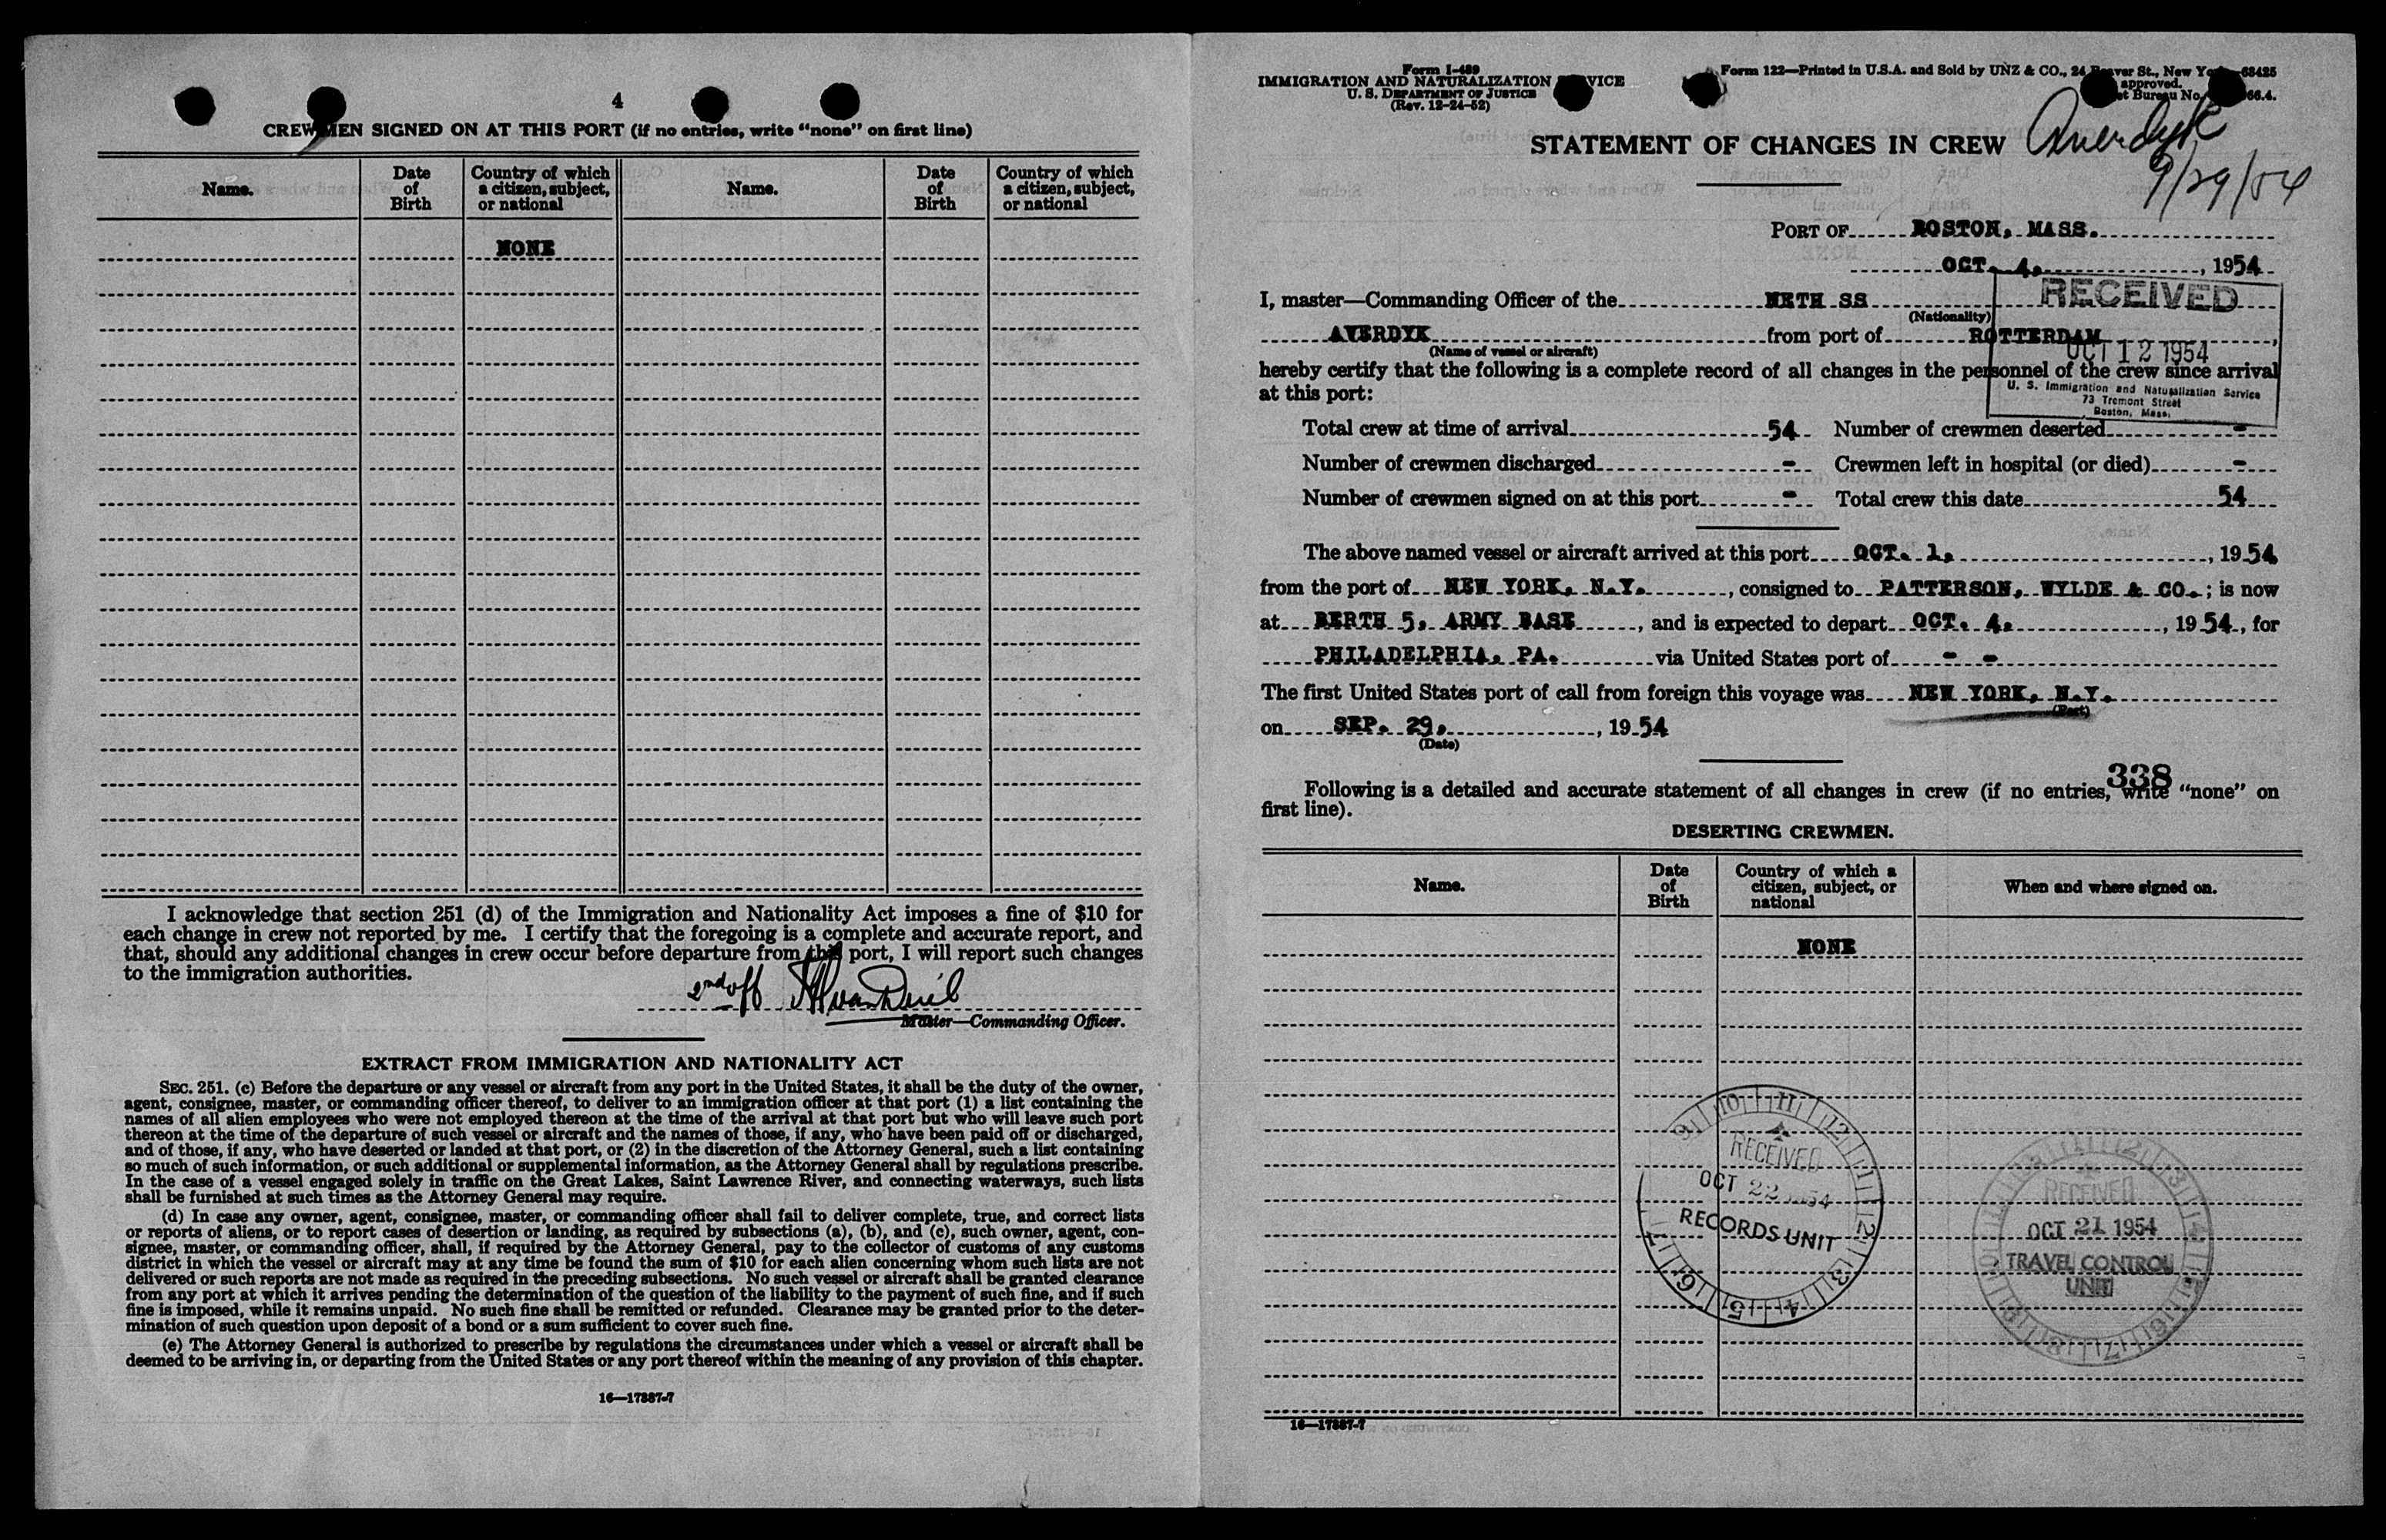 4
CREWMEN SIGNED ON AT THIS PORT (if no entries, write "none" on first line)
Name. Date of Birth Country of which a citizen, subject, or national Name. Date of Birth Country of which a citizen, subject, or national
NONE
I acknowledge that section 251 (d) of the Immigration and Nationality Act imposes a fine of $10 for
each change in crew not reported by me. I certify that the foregoing is a complete and accurate report, and
that, should any additional changes in crew occur before departure from this port, I will report such changes
to the immigration authorities.
2nd off
Master—Commanding Officer.
EXTRACT FROM IMMIGRATION AND NATIONALITY ACT
SEC. 251. (c) Before the departure or any vessel or aircraft from any port in the United States, it shall be the duty of the owner,
agent, consignee, master, or commanding officer thereof, to deliver to an immigration officer at that port (1) a list containing the
names of all alien employees who were not employed thereon at the time of the arrival at that port but who will leave such port
thereon at the time of the departure of such vessel or aircraft and the names of those, if any, who have been paid off or discharged,
and of those, if any, who have deserted or landed at that port, or (2) in the discretion of the Attorney General, such a list containing
so much of such information, or such additional or supplemental information, as the Attorney General shall by regulations prescribe.
In the case of a vessel engaged solely in traffic on the Great Lakes, Saint Lawrence River, and connecting waterways, such lists
shall be furnished at such times as the Attorney General may require.
(d) In case any owner, agent, consignee, master, or commanding officer shall fail to deliver complete, true, and correct lists
or reports of aliens, or to report cases of desertion or landing, as required by subsections (a), (b), and (c), such owner, agent, con-
signee, master, or commanding officer, shall, if required by the Attorney General, pay to the collector of customs of any customs
district in which the vessel or aircraft may at any time be found the sum of $10 for each alien concerning whom such lists are not
delivered or such reports are not made as required in the preceding subsections. No such vessel or aircraft shall be granted clearance
from any port at which it arrives pending the determination of the question of the liability to the payment of such fine, and if such
fine is imposed, while it remains unpaid. No such fine shall be remitted or refunded. Clearance may be granted prior to the deter-
mination of such question upon deposit of a bond or a sum sufficient to cover such fine.
(e) The Attorney General is authorized to prescribe by regulations the circumstances under which a vessel or aircraft shall be
deemed to be arriving in, or departing from the United States or any port thereof within the meaning of any provision of this chapter.
16—17887-7
Form I-489
IMMIGRATION AND NATURALIZATION SERVICE
U. S. DEPARTMENT OF JUSTICE
(Rev. 12-24-52)
Form 122—Printed in U.S.A. and Sold by UNZ & CO., 24 Beaver St., New Yo 68425
approved.
et Bureau No. 66.4.
STATEMENT OF CHANGES IN CREW
Averdyk
9/29/54
PORT OF BOSTON, MASS.
OCT. 4, , 1954
I, master—Commanding Officer of the NETH SS
(Nationality)
AVERDYK from port of ROTTERDAM ,
(Name of vessel or aircraft)
hereby certify that the following is a complete record of all changes in the personnel of the crew since arrival
at this port:
RECEIVED
OCT 12 1954
U. S. Immigration and Naturalization Service
73 Tremont Street
Boston, Mass.
Total crew at time of arrival 54 Number of crewmen deserted -
Number of crewmen discharged - Crewmen left in hospital (or died) -
Number of crewmen signed on at this port - Total crew this date 54
The above named vessel or aircraft arrived at this port OCT. 1, , 1954
from the port of NEW YORK, N.Y. , consigned to PATTERSON, WYLDE & CO. ; is now
at BERTH 5, ARMY BASE , and is expected to depart OCT. 4, , 1954 , for
PHILADELPHIA, PA. via United States port of - -
The first United States port of call from foreign this voyage was NEW YORK, N.Y.
(Port)
on SEP. 29, , 1954
(Date)
338
Following is a detailed and accurate statement of all changes in crew (if no entries, write "none" on
first line).
DESERTING CREWMEN.
Name. Date of Birth Country of which a citizen, subject, or national When and where signed on.
NONE
9 10 11 12 1 2 3 4 5 6 7
RECEIVED
OCT 22 1954
RECORDS UNIT
RECEIVED
OCT 21 1954
TRAVEL CONTROL
UNIT
16—17887-7